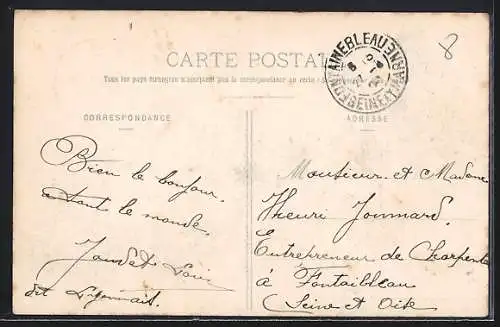 8
FONTAINEBLEAU
SEINE ET MARNE
CARTE POSTALE
Tous les pays étrangers n'acceptent pas la correspondance au recto
CORRESPONDANCE
ADRESSE
Bien le bonjour
a tout le monde,
dit Lyonnais.
Monsieur et Madame
Henri
Entrepreneur de Charpente
à Fontaibleau
(Seine et Oise